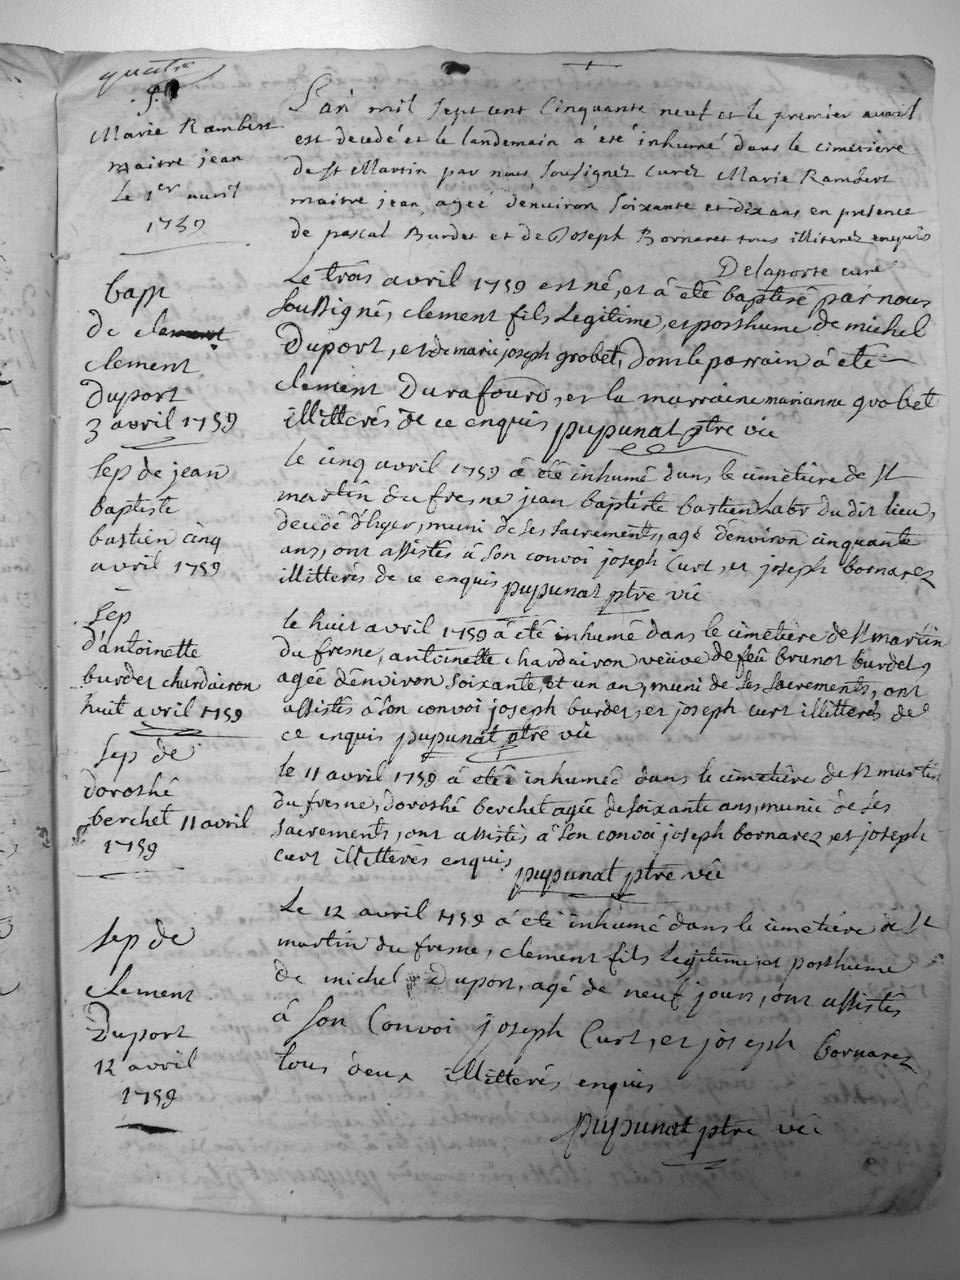 quatre
S.
Marie Rambert
maitre jean
Le 1er avril
1759
L'an mil sept cent Cinquante neuf et le premier avril
est decedé et le landemain à eté inhumé dans le cimetiere
de St Martin par nous sousignez curez Marie Rambert
maitre jean, ageé d'environ soixante et dix ans en presence
de pascal Burdet et de Joseph Bornaret tous illiterez enquis
Delaporte curé
bapt
de clement
clement
duport
3 avril 1759
Le trois avril 1759 est né, et à eté baptisé par nous
soussigné, clement fils Legitime, et posthume de michel
Duport, et de marie joseph grobet, dont le parrain à eté
clement Durafourd, et la marraine marianne grobet
illitterés de ce enquis pupunat ptre vic
Sep de jean
baptiste
bastien cinq
avril 1759
le cinq avril 1759 à eté inhumé dans le cimetiere de St
martin du fresne jean baptiste bastien Labr du dit lieu,
decedé d'hyer, muni de ses sacrements, agé d'environ cinquante
ans, ont assistés à son convoi joseph Curt, et joseph bornarez
illitterés de ce enquis pupunat ptre vic
Sep
d'antoinette
burdet chardairon
huit avril 1759
le huit avril 1759 à été inhumé dans le cimetiere de St martin
du fresne, antoinette chardairon veuve de feû brunot burdet,
agée d'environ soixante, et un an, muni de ses sacrements, ont
assistés à son convoi joseph burdet, et joseph curt illitterés de
ce enquis pupunat ptre vic
Sep de
dorothé
berchet 11 avril
1759
le 11 avril 1759 à eté inhumée dans le cimetière de St martin
du fresne, dorothé berchet agée de soixante ans, munie de ses
sacrements, ont assistés à son convoi joseph bornarez, et joseph
curt illitterés enquis pupunat ptre vic
Sep de
clement
Duport
12 avril
1759
Le 12 avril 1759 à eté inhumé dans le cimetiere de St
martin du fresne, clement fils Legitime, et posthume
de michel Duport, agé de neuf jours, ont assistés
à son Convoi joseph Curt, et joseph bornarez
tous deux illitterés enquis
pupunat ptre vic